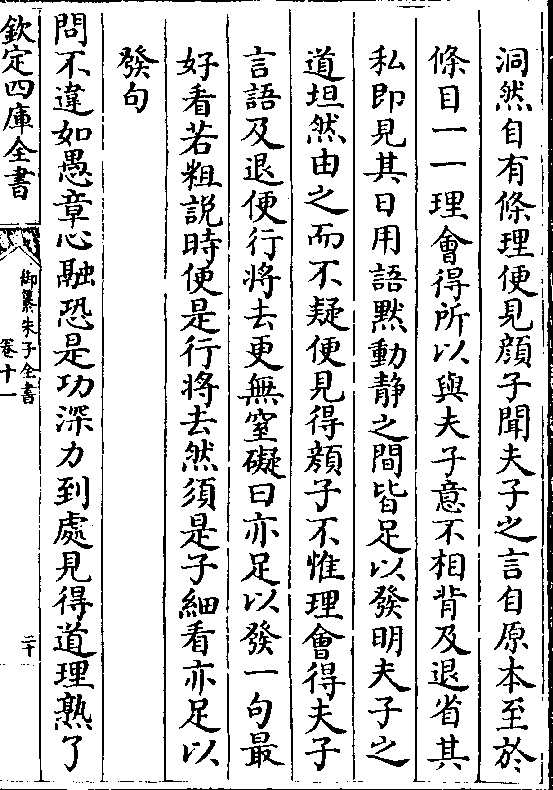 洞然自有條理便見顔子聞夫子之言自原本至於
條目一一理會得所以與夫子意不相背及退省其
私即見其日用語黙動靜之間皆足以發明夫子之
道坦然由之而不疑便見得顔子不惟理會得夫子
言語及退便行將去更無窒礙曰亦足以發一句最
好看若粗説時便是行將去然須是子細看亦足以
發句
問不違如愚章心融恐是功深力到處見得道理熟了
欽定四庫全書
御纂朱子全書
卷十一
二十